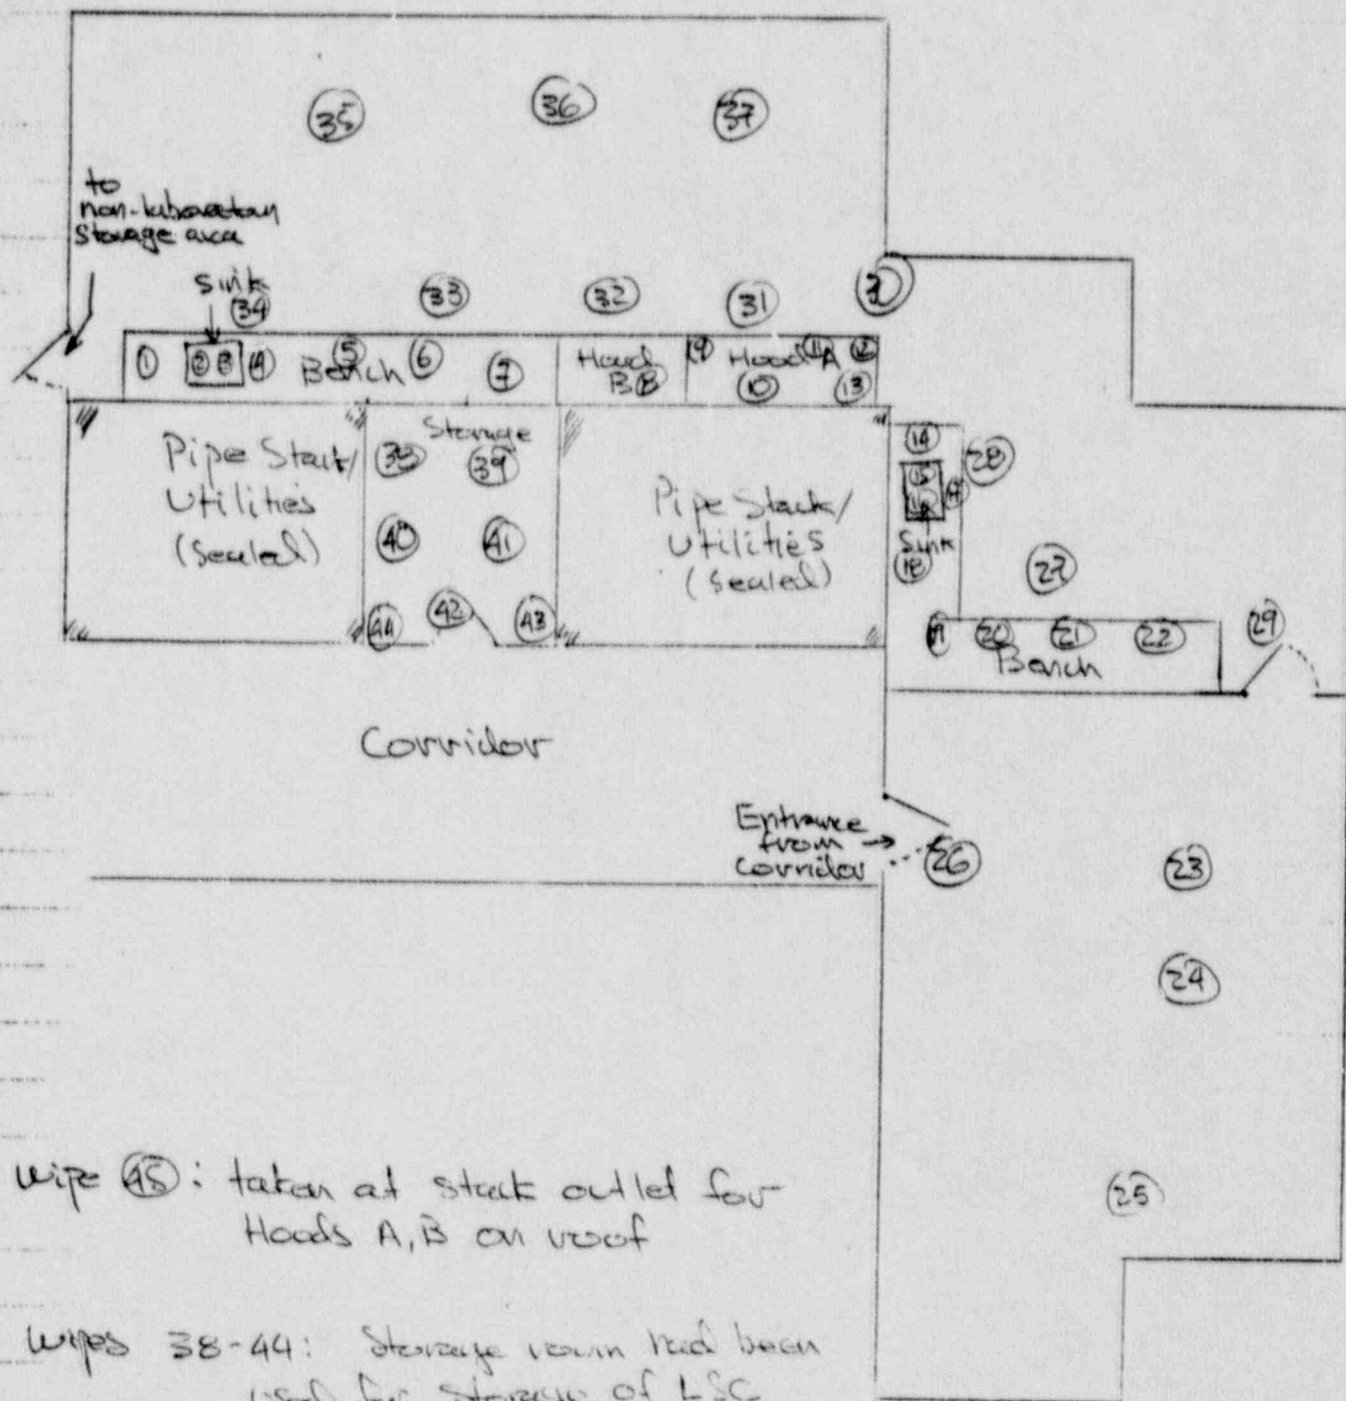 35 36 37
to
non-laboratory
storage area
sink
34 33 32 31 30
1 2 3 4 Bench 5 6 7
Hood
B 8
9 Hood A 11 12
10 13
Pipe Stack/
Utilities
(Sealed)
Storage
38 39
40 41
44 42 43
Pipe Stack/
Utilities
(Sealed)
14
15
28
Sink
18
27
20 21 22
Bench
29
Corridor
Entrance
from →
Corridor
26
23
24
25
Wipe 45: taken at stack outlet for
Hoods A, B on roof
Wipes 38-44: Storage room had been
used for storage of LSC